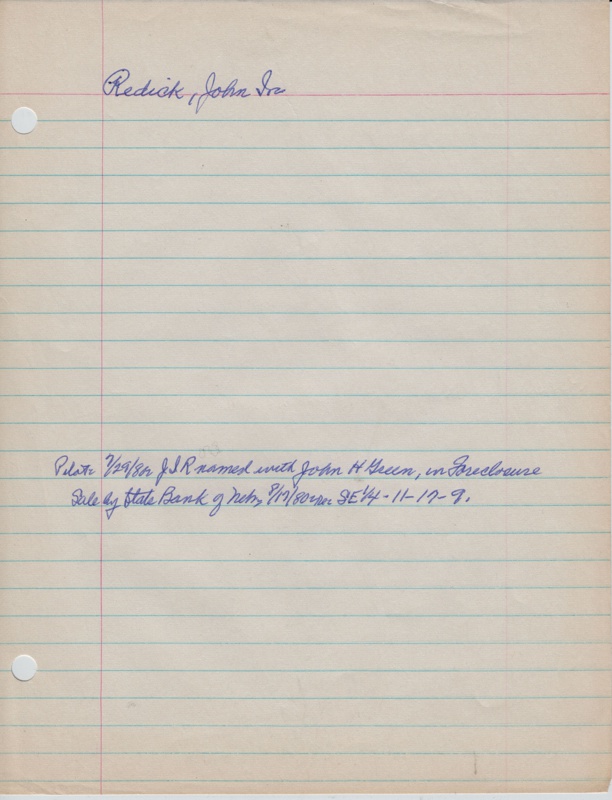 Redick, John Ira
Pilot: 7/29/80 J I R named with John H Green, in Foreclosure
Sale by State Bank of Nebr, 8/17/80 SE 1/4 - 11-17-9.